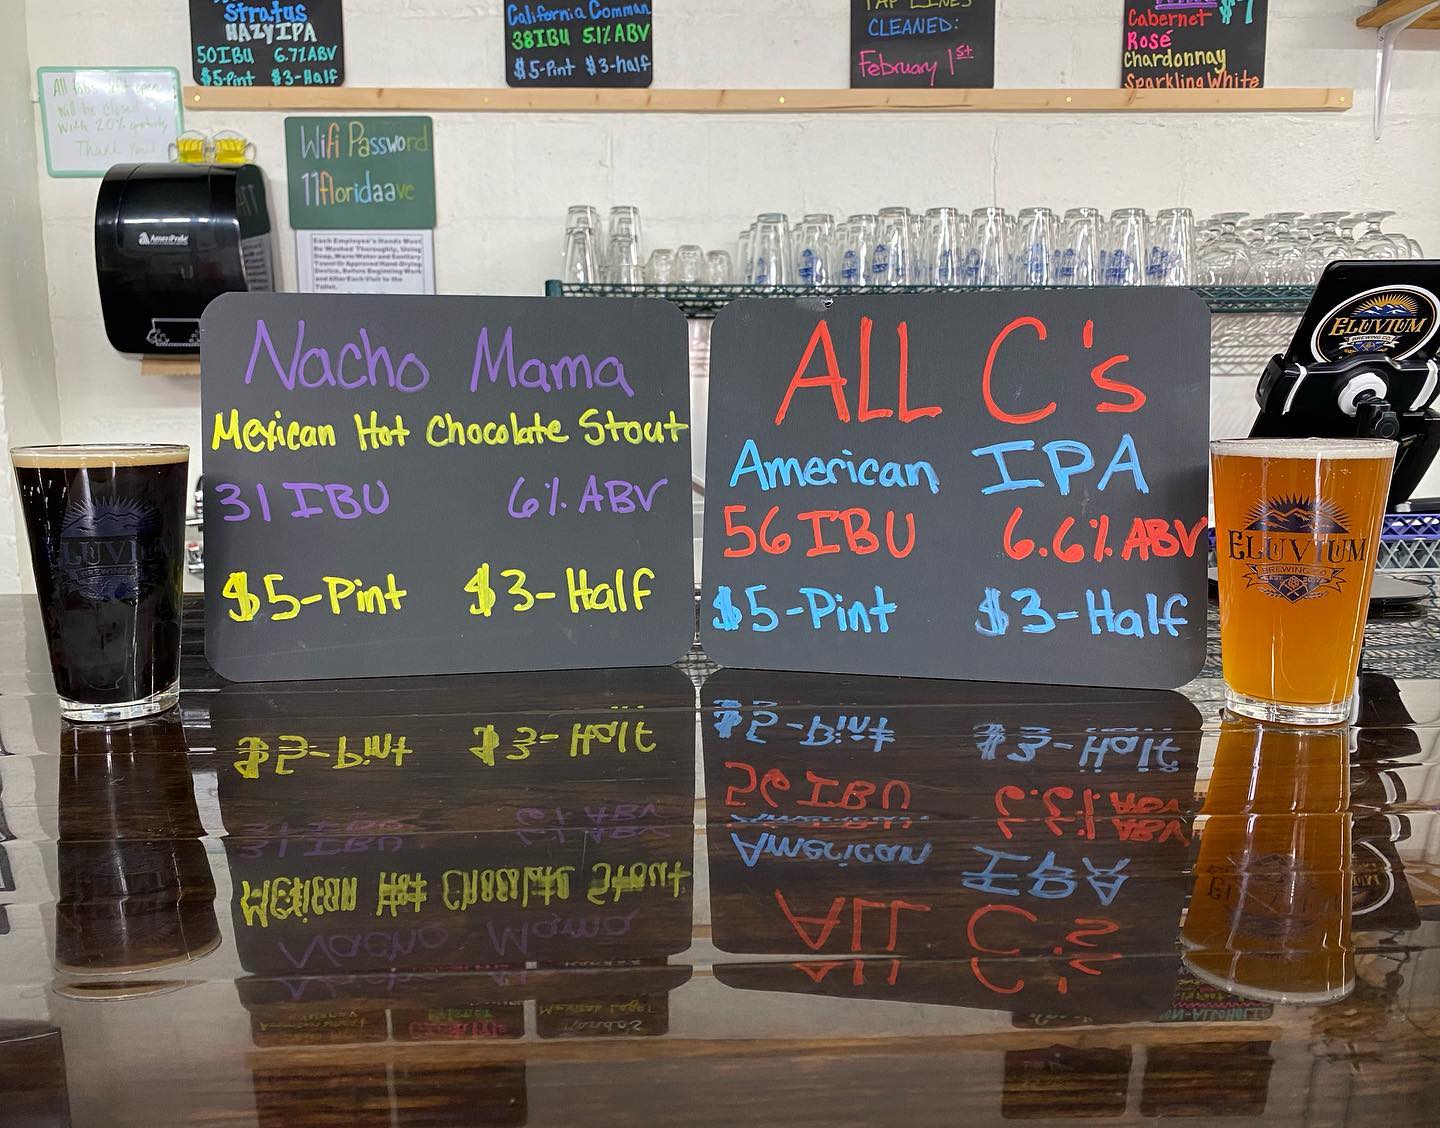 Stratus
HAZY IPA
50 IBU 6.7% ABV
$5-Pint $3-Half
California Common
38 IBU 5.1% ABV
$5-Pint $3-Half
TAP LINES
CLEANED:
February 1st
$7
Cabernet
Rosé
Chardonnay
Sparkling White
All tabs left open
will be closed
with 20% gratuity
Thank You!
Wifi Password
11floridaave
Each Employee's Hands Must
Be Washed Thoroughly, Using
Soap, Warm Water and Sanitary
Towel Or Approved Hand-Drying
Device, Before Beginning Work
and After Each Visit to the
Toilet.
Nacho Mama
Mexican Hot Chocolate Stout
31 IBU 6% ABV
$5-Pint $3-Half
ALL C's
American IPA
56 IBU 6.6% ABV
$5-Pint $3-Half
ELUVIUM
BREWING CO.
ELUVIUM
BREWING CO.
ELUVIUM
BREWING CO.
EST.